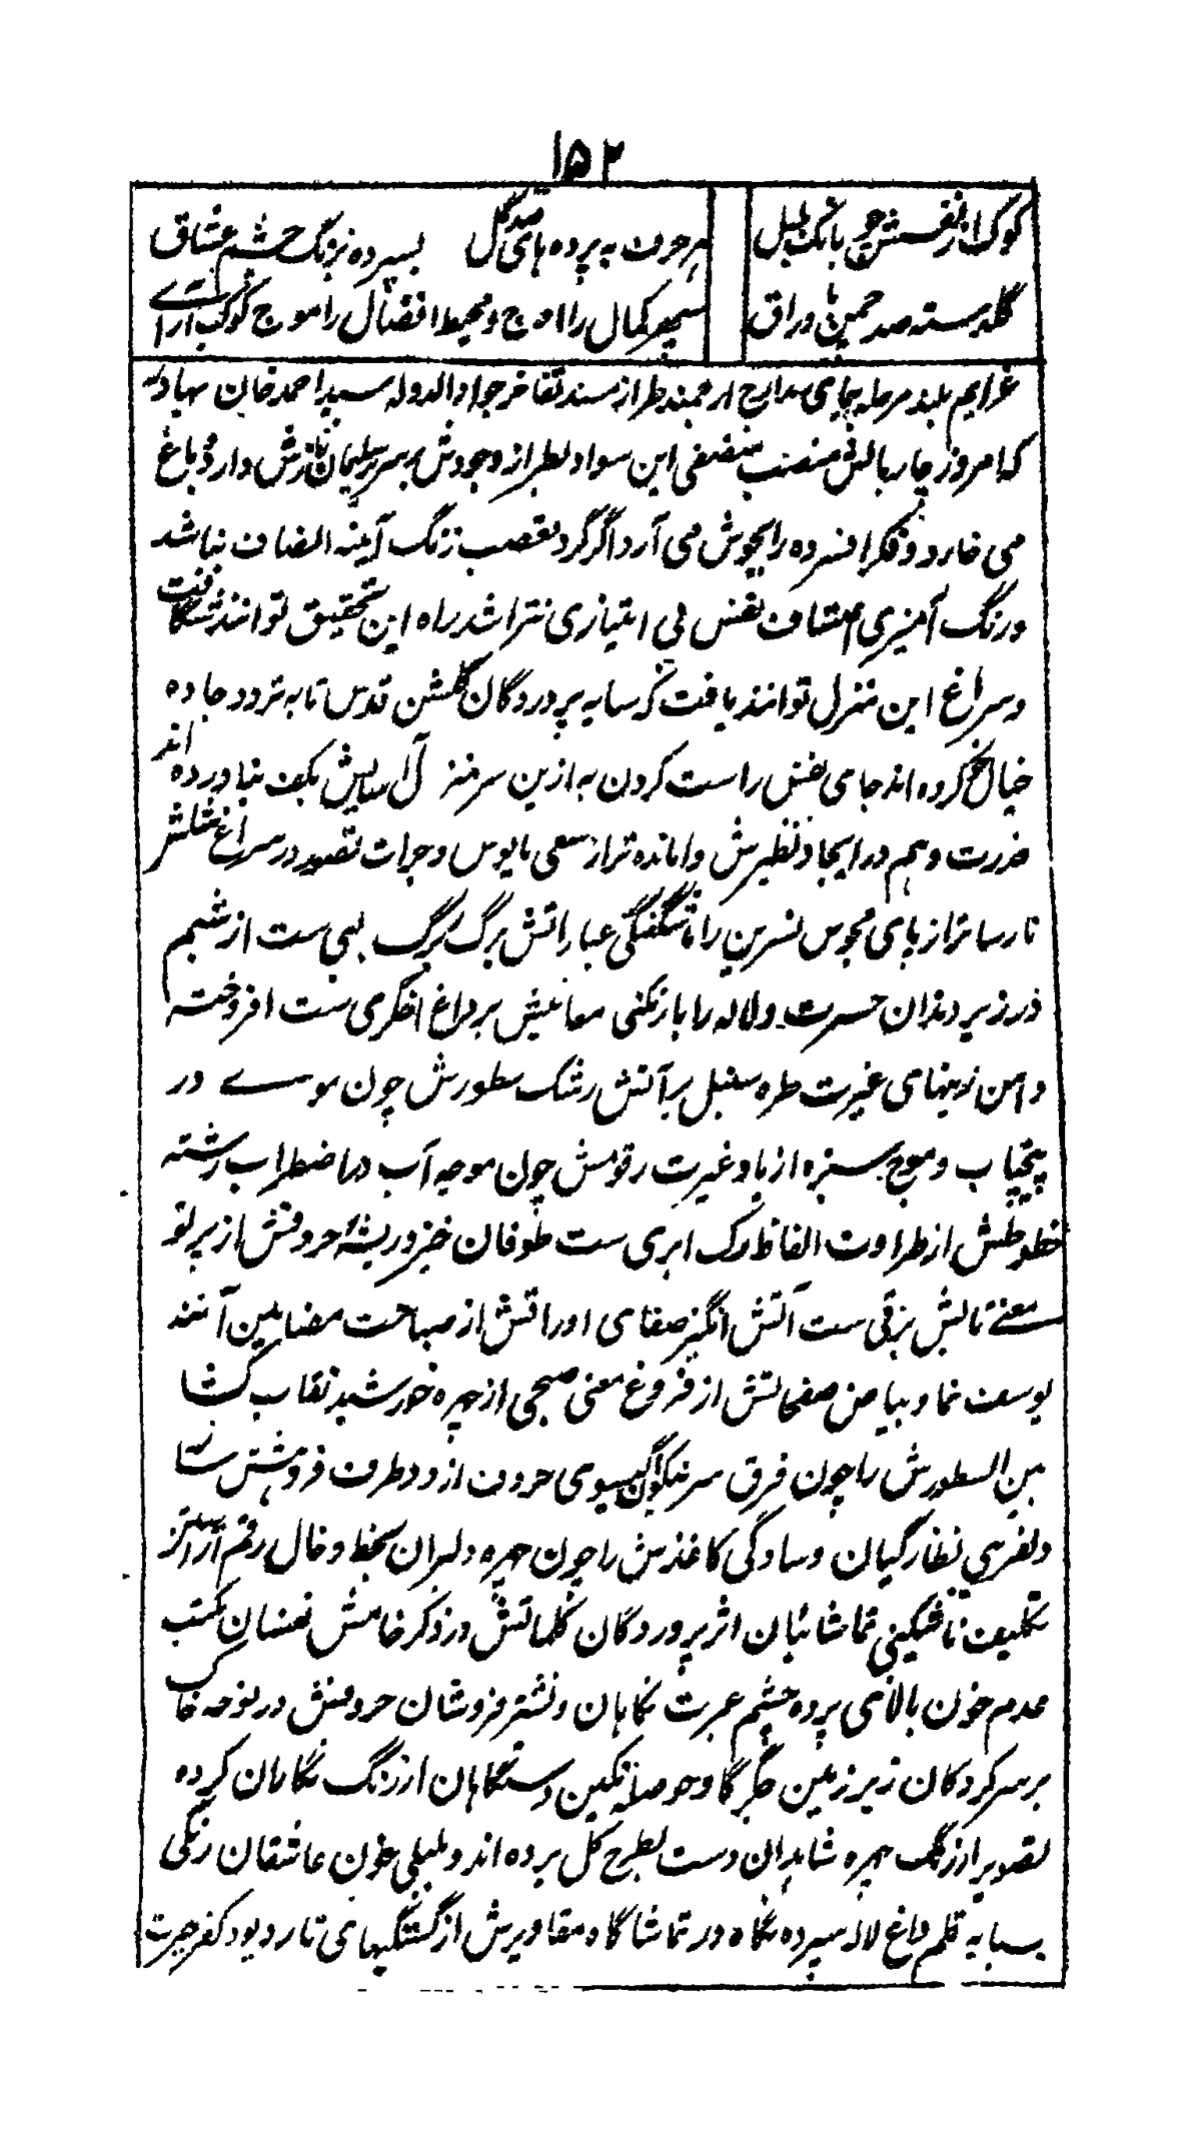 ۱۵۲
کوک از نفسش چو بانگ بلبل هر حرف به پرده های صد گل بسپرده برنگ چشم عشاق
گلدسته صد چمن باوراق سپهر کمال را اوج و محیط افضال را موج کوکب آرای
عزایم بلند مرحله پیمای مدارج ارجمند طراز مسند تفاخر جواد الدوله سید احمد خان بهادر
که امروز چار بالش منصب منصفی این سواد بطراز وجودش بر سریر سلیمان نازش دارد دماغ
می خارد و فکر افسرده را بجوش می آرد اگر گرد تعصب زنگ آئینه انصاف نباشد
و رنگ آمیزی اعتساف نقش بی امتیازی نتراشد راه این تحقیق توانند شگافت
و سراغ این منزل توانند یافت که سایه پروردگان گلشن قدس تا به تردد جاده
خیال کج کرده اند جای نفس راست کردن به ازین سر منزل آسایش بکف نیاورده اند
قدرت وهم در ایجاد نظیرش وامانده تر از سعی مایوس و جرات تصور در سراغ مثلش
نارساتر از پای محبوس نسرین را با شگفتگی عباراتش برگ برگ لبی ست از شبنم
در زیر دندان حسرت و لاله را با رنگینی معانیش بر داغ اخگری ست افروخته
دامن زنیهای غیرت طره سنبل بر آتش رشک سطورش چون موے در
پیچتاب و موج سبزه از باد غیرت رقومش چون موجه آب در اضطراب رشته
خطوطش از طراوت الفاظ رگ ابری ست طوفان خیز و ریشهٔ حروفش از پرتو
معنے تابش برقی ست آتش انگیز صفای اوراقش از صباحت مضامین آئنه
یوسف نما و بیاض صفحاتش از فروغ معنی صبحی از چهره خورشید نقاب کشا
بین السطورش را چون فرق سرنگون گیسوی حروف از دو طرف فروهشتن ست تا
دلفریبی نظارگیان و سادگی کاغذش را چون چهره دلبران بخط و خال رقم آراستن
تکلیف ناشکیبی تماشائیان اثر پروردگان کلماتش در ذکر خامش نفسان مکتب
عدم خون بالای پرده چشم عبرت نگاهان و نشتر فروشان حروفش در نوحه خاک
بر سر کردگان زیر زمین جگر گاو حوصله تمکین دستگاهان ارژنگ نگاران گرده
تصویر از رنگ چهره شاهدان دست بطرح گل برده اند و بلبلی خون عاشقان رنگی
بسیاه قلم داغ لاله سپرده نگاه در تماشاگاه مقاومش از گسستگیهای تار و پود کفر حیرت